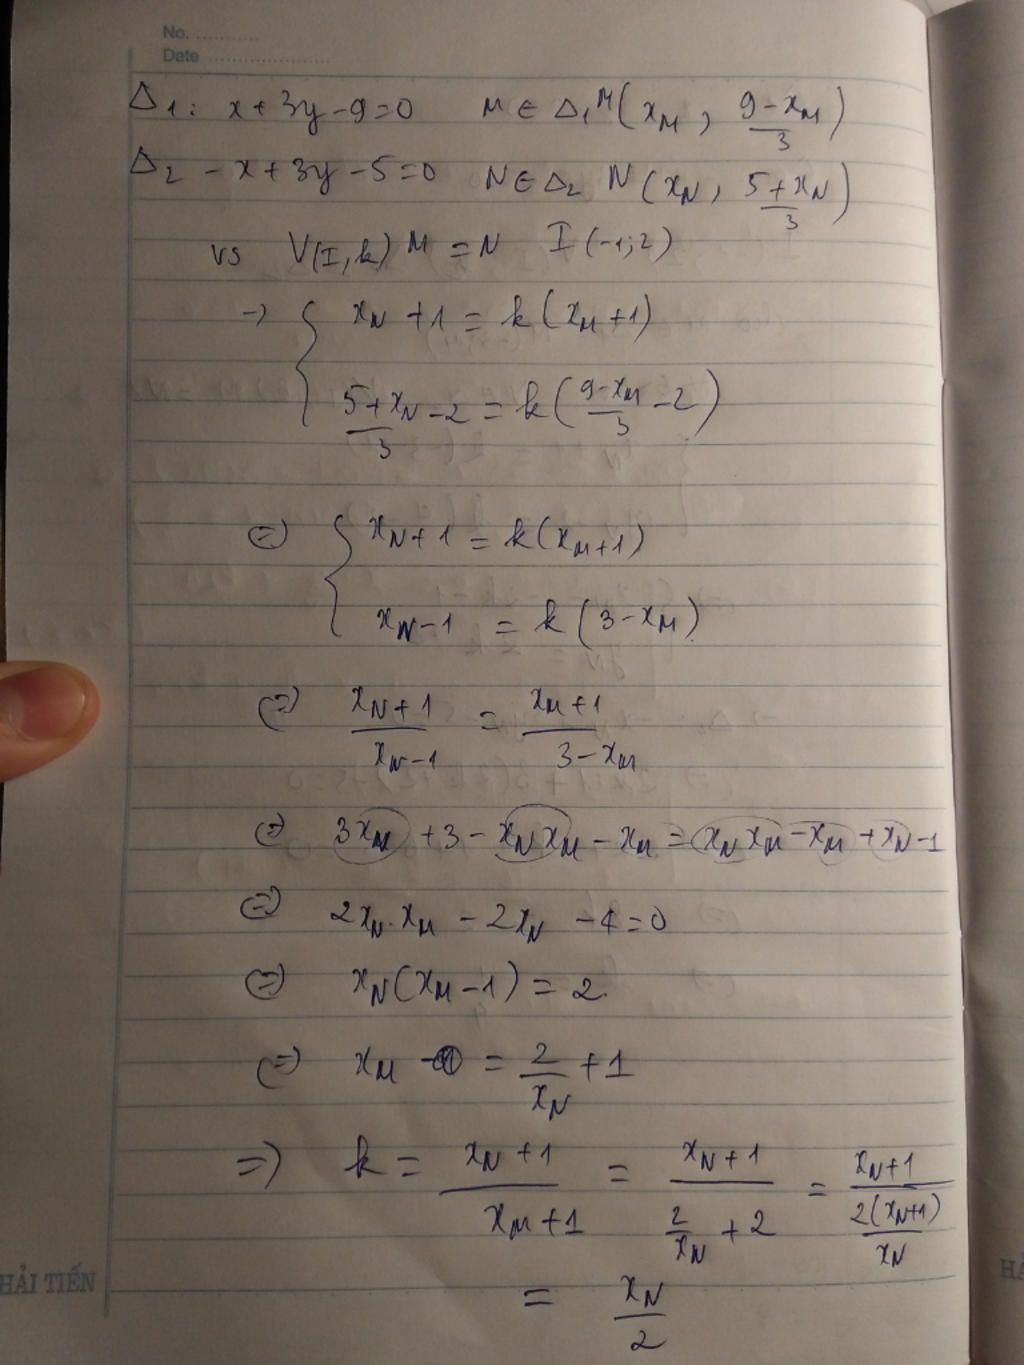 No. ...........
Date .....................
Δ₁: x+3y-9=0 M ∈ Δ₁ M(x_M, (9-x_M)/3)
Δ₂ -x+3y-5=0 N∈Δ₂ N(x_N, (5+x_N)/3)
vs V(I,k) M = N I(-1;2)
→ { x_N+1 = k(x_M+1)
(5+x_N)/3 -2 = k((9-x_M)/3 -2)
⇔ { x_N+1 = k(x_M+1)
x_N-1 = k(3-x_M)
⇔ (x_N+1)/(x_N-1) = (x_M+1)/(3-x_M)
⇔ 3x_M + 3 - x_N x_M - x_M = x_N x_M - x_M + x_N - 1
⇔ 2x_N.x_M - 2x_N - 4 = 0
⇔ x_N(x_M-1) = 2
⇔ x_M = 2/x_N + 1
⇒ k = (x_N+1)/(x_M+1) = (x_N+1)/(2/x_N + 2) = (x_N+1)/(2(x_N+1)/x_N)
= x_N/2
HẢI TIẾN